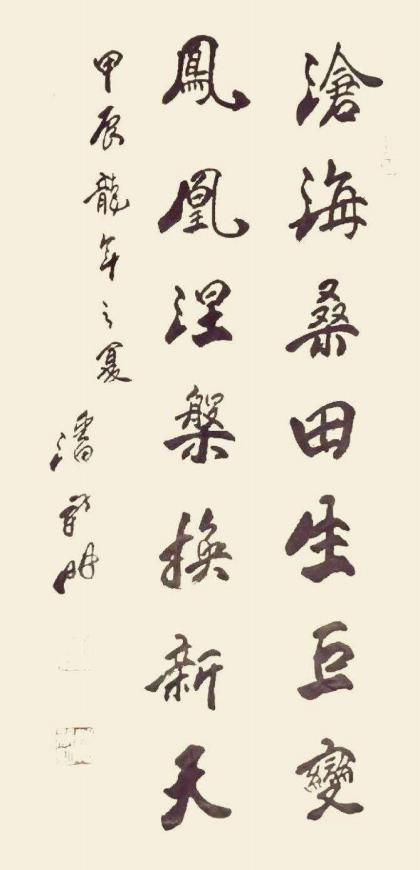 滄海桑田生巨變
鳳凰涅槃換新天
甲辰龍年之夏
潘明